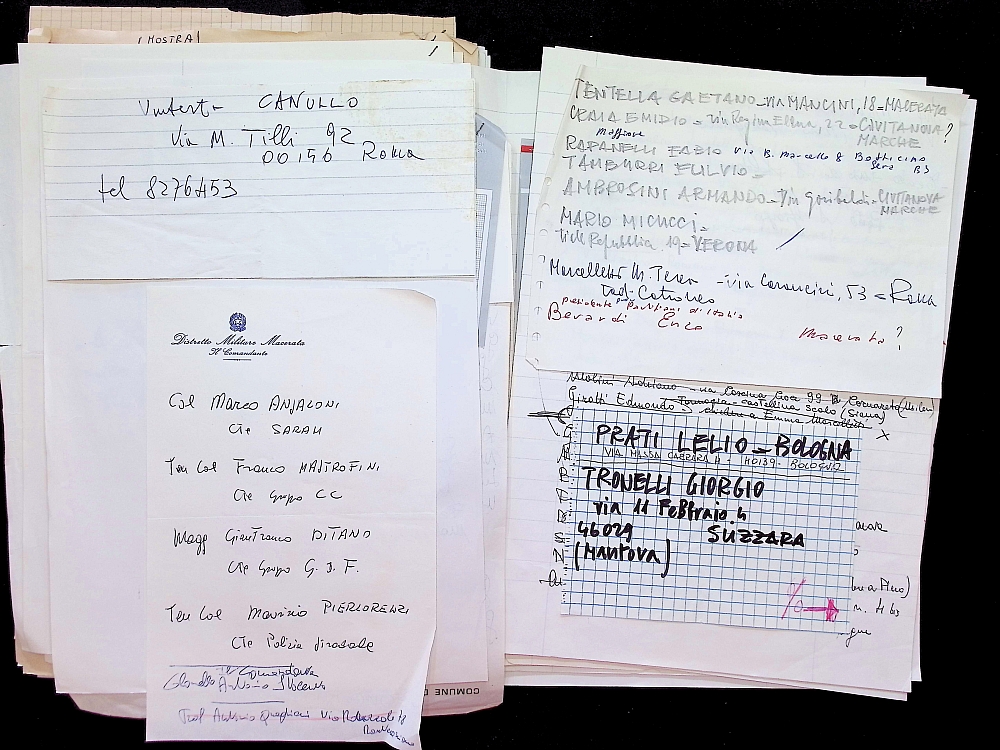 (MOSTRA)
CANULLO
Via M. Tilli 92
00156 Roma
tel 8276453
Distretto Militare Macerata
Il Comandante
Col Marco ANJALONI
Cte SARAM
Ten Col Franco MASTROFINI
Cte Gruppo CC
Magg Gianfranco DITANO
Cte Gruppo G. d. F.
Ten Col Maurizio PIERLORENZI
Cte Polizia Stradale
Prof Antonio
COMUNE D
TENTELLA GAETANO - via MANCINI, 18 - MACERATA
CRAIA EMIDIO - via Regina Elena, 22 - CIVITANOVA MARCHE ?
Maggiore
RAPANELLI FABIO Via B. Marcello 8 Botticino Sera BS
TAMBURRI FULVIO -
AMBROSINI ARMANDO - Via Garibaldi - CIVITANOVA MARCHE
MARIO MICUCCI -
V.le Repubblica 19 - VERONA
M. Teresa - via Carancini, 53 = Roma
presidente Partigiani d'Italia
Berardi Enzo Macerata ?
Molini Adriano - via Cascina 99 Cornaredo (Milano)
Girotti Edmondo
Castellina Scalo (Siena)
PRATI LELIO - BOLOGNA
VIA MASSA CARRARA 4 - 40139 - BOLOGNA
TRONELLI GIORGIO
via 11 Febbraio 4
46029 SUZZARA
(Mantova)
n. 4 bis